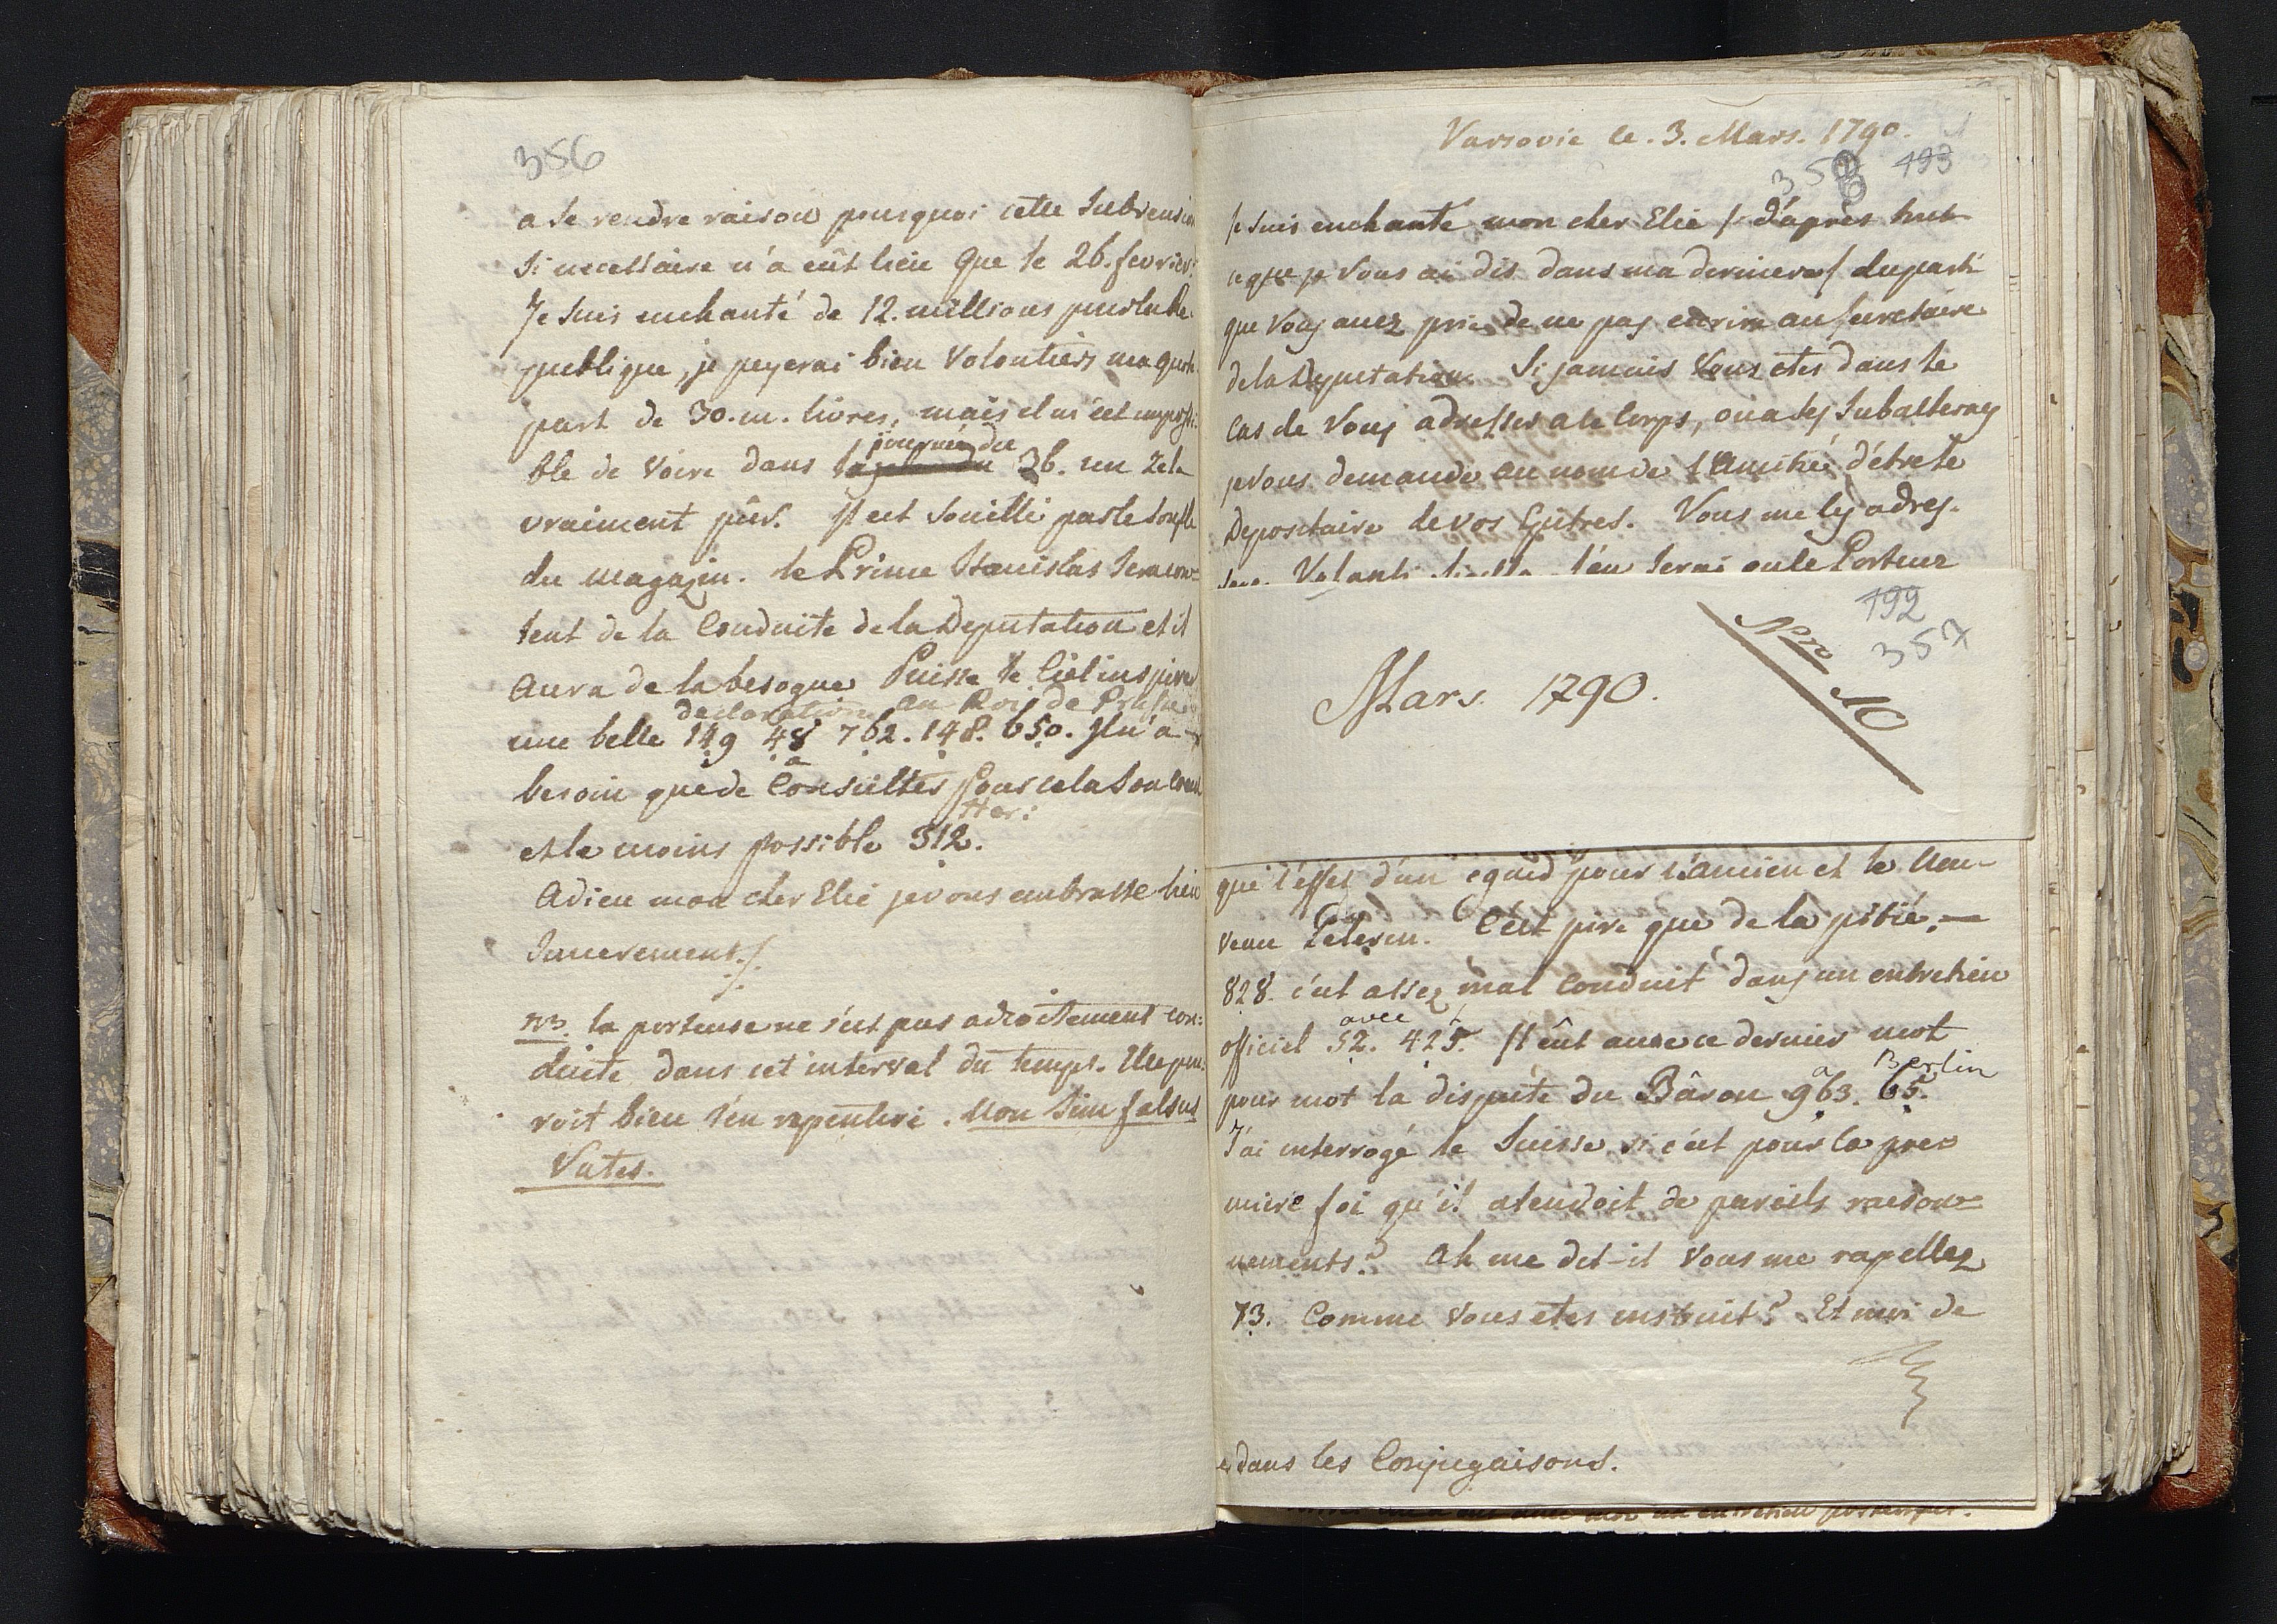 356
a se rendre raison pourquoi cette Subvension
si necessaire n'a eût lieu que le 26. fevrier.
Je suis enchanté de 12. millions pour la Re-
publique, je peyerai bien Volontiers ma quote
part de 30.m. livres, mais il m'est impossi-
journée du
ble de Voire dans 26. un Zele
vraiment pûr. Il est souillé par le soufle
du magazin. le Prince Stanislas sera con=
tent de la Conduite de la Deputation et il
aura de la besogne Puisse le Ciel inspirer
declaration au Roi de Prusse
une belle 149 48 762. 148. 650. Il n'a
a
besoin que de Consulter pour cela son Coeur
Her:
et le moins possible 312.
Adieu mon cher Elie je vous embrasse bien
Sincerement ./.
NB. la porteuse ne s'est pas adroitement con:
duite dans cet interval du temps. Elle pou:
roit bien s'en repentire. Non sim falsus
Vates.
Varsovie le. 3. Mars. 1790.
193
358
Je suis enchanté mon cher Elie /: d'après tout
ce que je Vous ai dis dans ma derniere :/ du parti
que Vous avez pris de ne pas ecrire au Secretaire
de la Deputation. Si jamais Vous etes dans le
Cas de Vous adresser a ce Corps, ou a ses Subalternes
je vous demande au nom de l'Amitié d'être le
Depositaire de vos Epitres. Vous me les adres-
Volanti j'en serai ou le Porteur
192
357
Nro 10
Mars. 1790.
que l'effet d'un egard pour l'ancien et le Nou-
veau Pelerin. C'est pire que de la pitié. —
828. s'est assez mal Conduit dans un entretien
avec
officiel 52. 425. Il eût avec ce dernier mot
a Berlin
pour mot la dispute du Bâron 963. 65.
J'ai interrogé le Suisse si c'est pour la pre=
miere foi qu'il atendoit de pareils raison=
nements? Ah me dit-il Vous me rapellez
73. Comme Vous etes instruit? Et moi de
dans les Conjugaisons.
un entretien